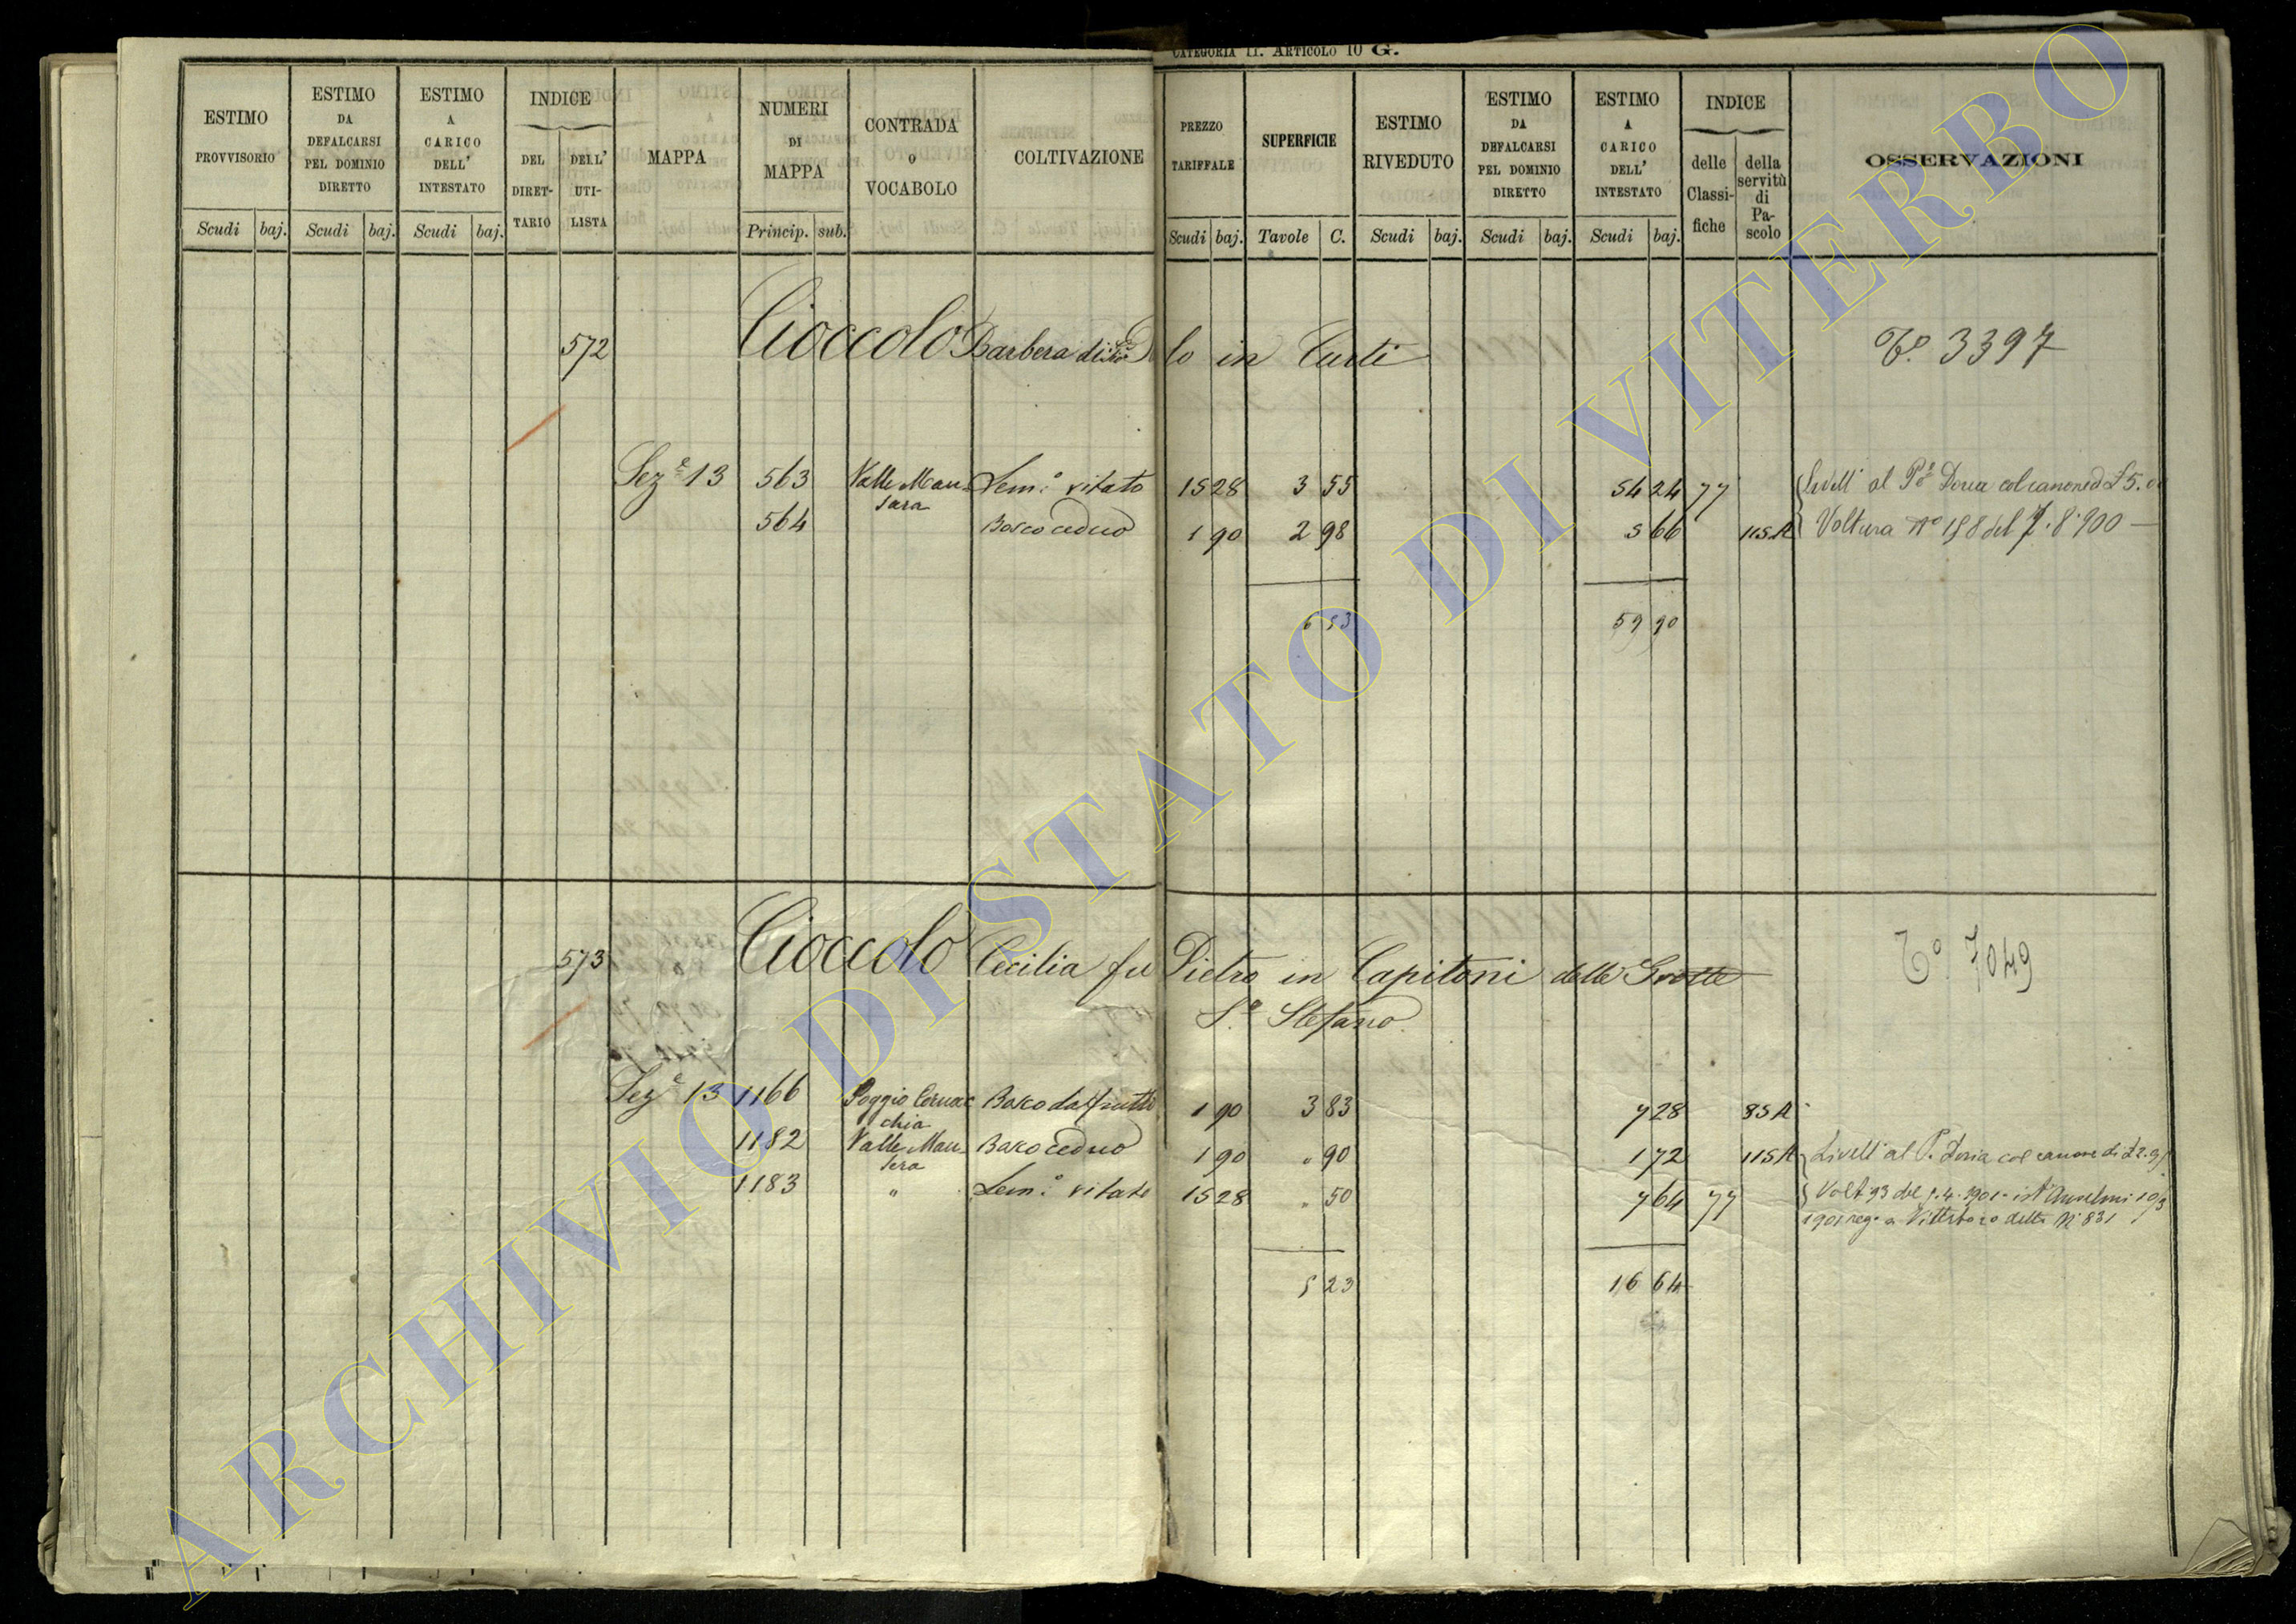 CATEGORIA II. ARTICOLO 10 G.
ESTIMO PROVVISORIO
ESTIMO DA DEFALCARSI PEL DOMINIO DIRETTO
ESTIMO A CARICO DELL' INTESTATO
INDICE
DEL DIRET- TARIO
DELL' UTI- LISTA
MAPPA
NUMERI DI MAPPA
CONTRADA O VOCABOLO
COLTIVAZIONE
PREZZO TARIFFALE
SUPERFICIE
ESTIMO RIVEDUTO
ESTIMO DA DEFALCARSI PEL DOMINIO DIRETTO
ESTIMO A CARICO DELL' INTESTATO
INDICE
delle Classi- fiche
della servitù di Pa- scolo
OSSERVAZIONI
Scudi baj. Scudi baj. Scudi baj. Princip. sub. Scudi baj. Tavole C. Scudi baj. Scudi baj. Scudi baj.
572 Cioccolo Barbera di lo in Curti Tº. 3397
Sezᵉ 13 563 Valle Mau- Sem.º vitato 15 28 3 55 54 24 77 Livell' al Pº Doria col canone di £ 5.0
sara
564 Bosco ceduo 1 90 2 98 5 66 115A Voltura Nº 158 del 7.8.900
6 53 59 90
573 Cioccolo Cecilia fu Pietro in Capitoni delle Grotte Tº. 7049
Sº Stefano
Sezᵉ 13 1166 Poggio Cornac Bosco da frutti 1 90 3 83 7 28 85A
chia
1182 Valle Mau- Bosco ceduo 1 90 " 90 1 72 115A Livell' al P. Doria col canone di £ 2.9
sera
1183 " Sem.º vitato 15 28 " 50 7 64 77 Volt. 93 del 5.4.1901 - istº Anselmi 10/3
1901 reg. a Viterbo 20 detto Nº 831
5 23 16 64
ARCHIVIO DI STATO DI VITERBO